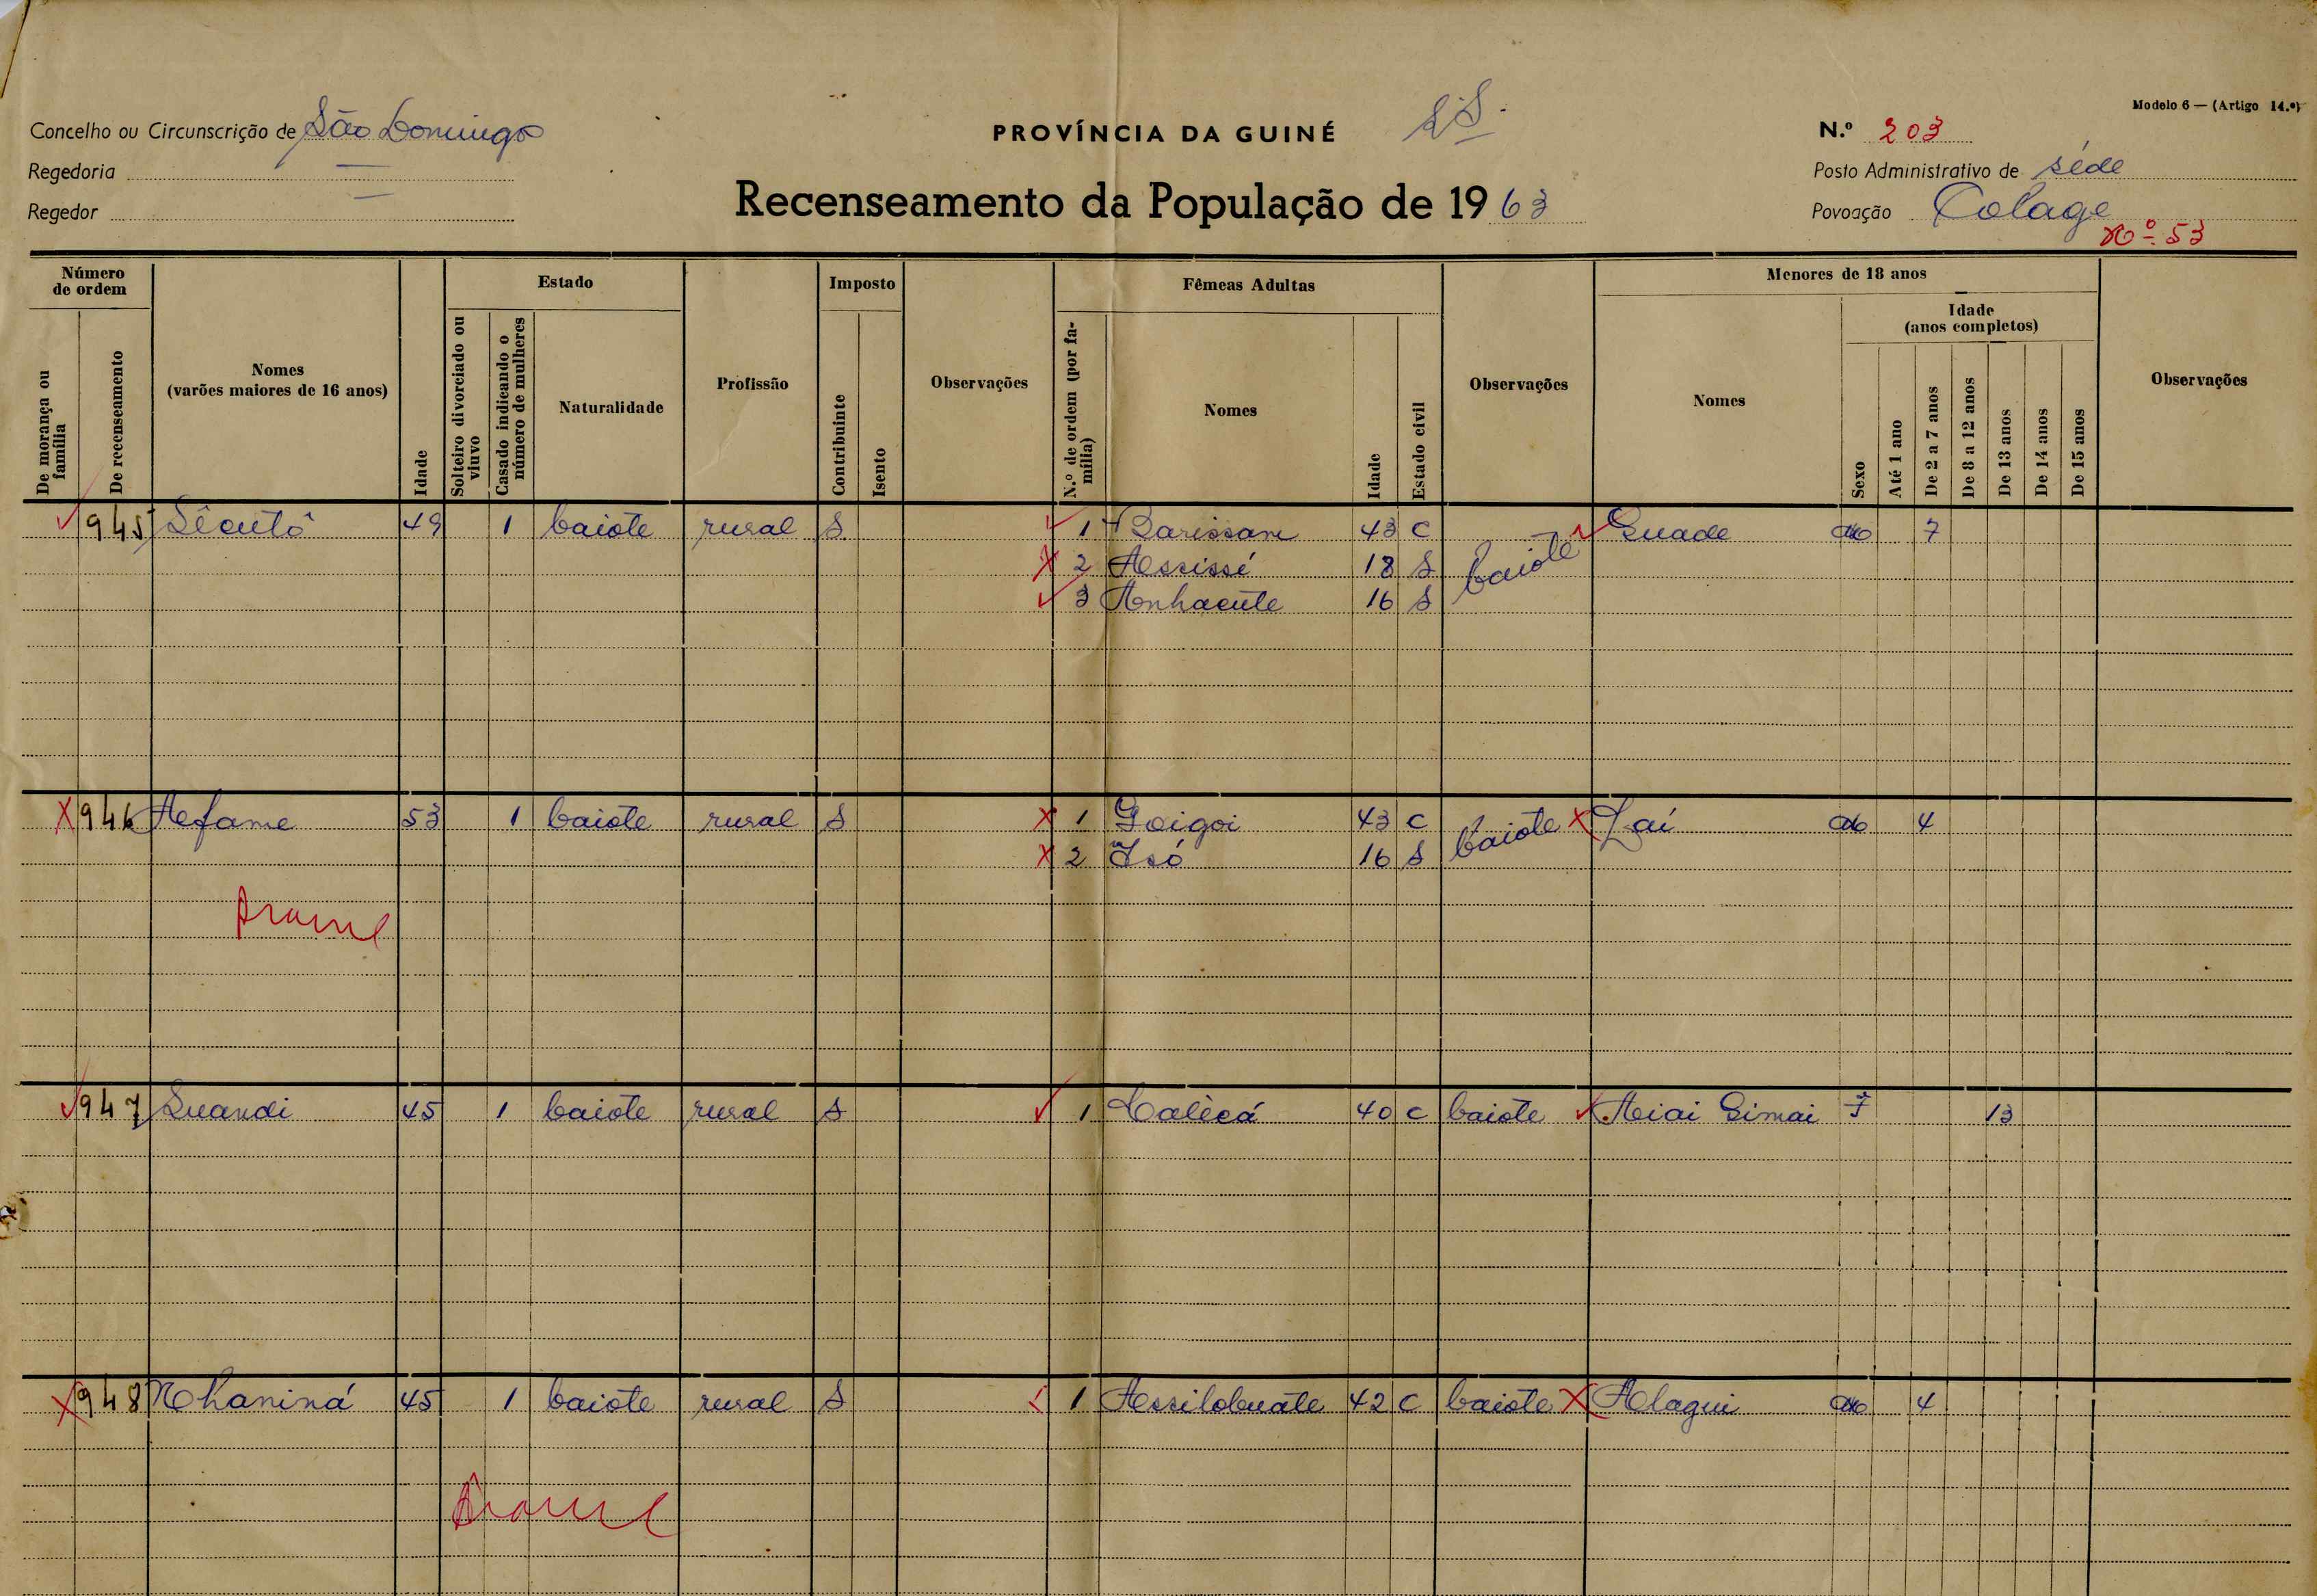 Modelo 6 — (Artigo 14.º)
Concelho ou Circunscrição de São Domingos
PROVÍNCIA DA GUINÉ
N.º 203
Regedoria —
Posto Administrativo de séde
Regedor —
Recenseamento da População de 1963
Povoação Colage
Nº 53
Número de ordem
Estado
Imposto
Fêmeas Adultas
Menores de 18 anos
Idade (anos completos)
De morança ou família
De recenseamento
Nomes (varões maiores de 16 anos)
Idade
Solteiro divorciado ou viuvo
Casado indicando o número de mulheres
Naturalidade
Profissão
Contribuinte
Isento
Observações
N.º de ordem (por família)
Nomes
Idade
Estado civil
Observações
Nomes
Sexo
Até 1 ano
De 2 a 7 anos
De 8 a 12 anos
De 13 anos
De 14 anos
De 15 anos
Observações
945 Sècutô 49 1 baiote rural S 1 Barissam 43 C Guade 7
2 Assissé 18 S baiote
3 Anhacute 16 S
946 Aefame 53 1 baiote rural S 1 Goigoi 43 C baiote Laí 4
2 Isó 16 S
Arame
947 Suandi 45 1 baiote rural S 1 Calècá 40 C baiote Aiai Simai F 13
948 Nhaniná 45 1 baiote rural S 1 Assilobuate 42 C baiote Alagui 4
Arame